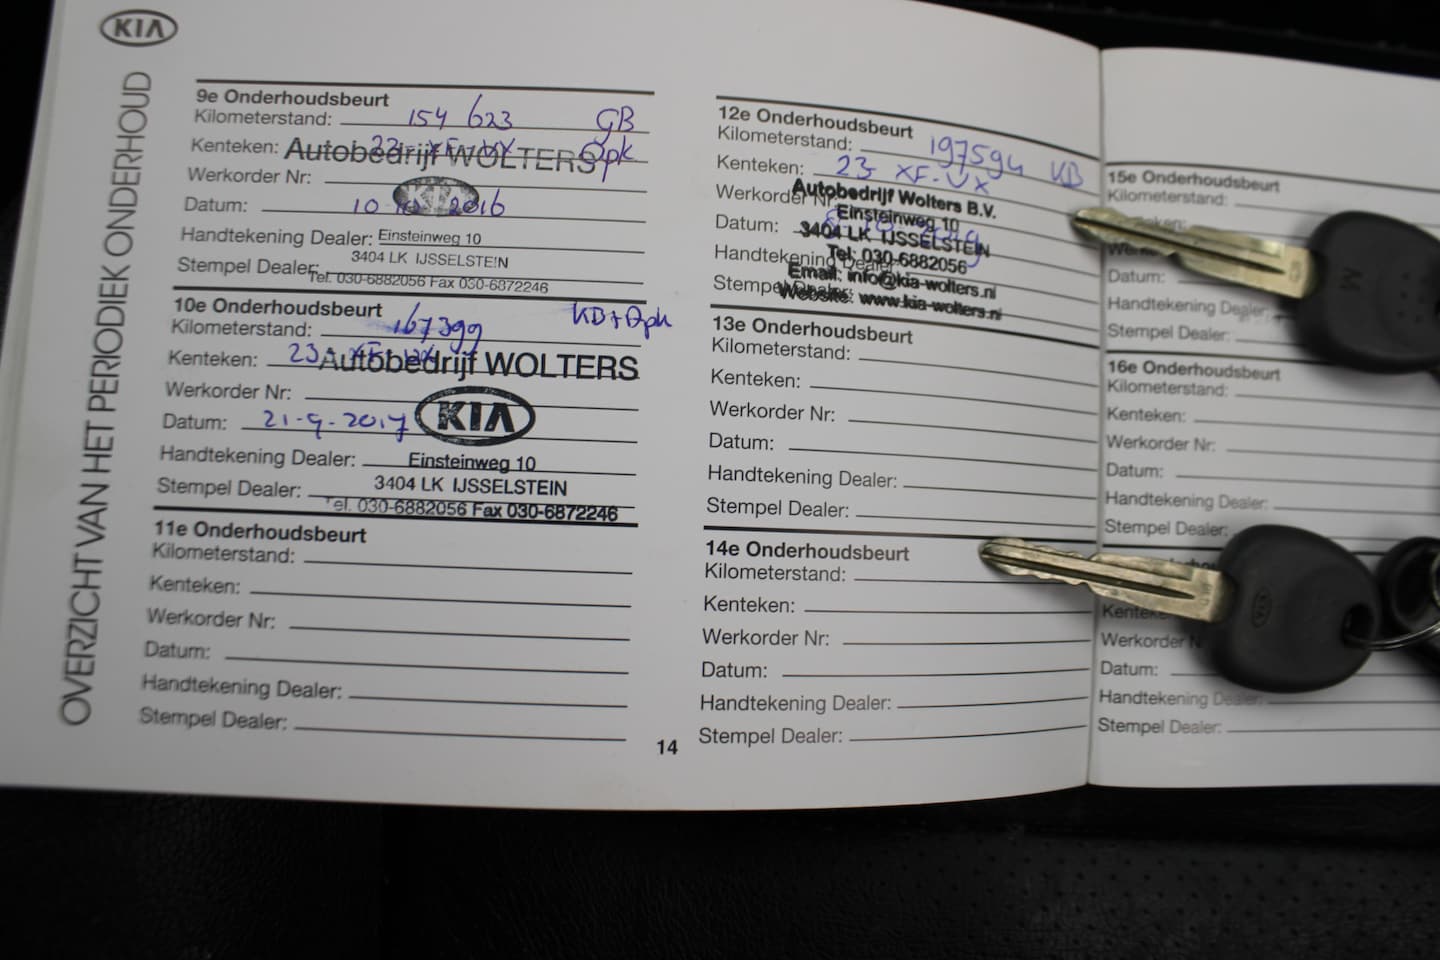 KIA
OVERZICHT VAN HET PERIODIEK ONDERHOUD
9e Onderhoudsbeurt
Kilometerstand: 154 623 GB
Kenteken: 23-XF-VX Opk
Autobedrijf WOLTERS
Werkorder Nr:
KIA
Datum: 10 2016
Handtekening Dealer: Einsteinweg 10
3404 LK IJSSELSTEIN
Stempel Dealer:
Tel. 030-6882056 Fax 030-6872246
10e Onderhoudsbeurt KB+Opk
Kilometerstand: 167399
Kenteken: 23-XF-VX
Autobedrijf WOLTERS
Werkorder Nr:
KIA
Datum: 21-9-2017
Handtekening Dealer:
Einsteinweg 10
3404 LK IJSSELSTEIN
Stempel Dealer:
Tel. 030-6882056 Fax 030-6872246
11e Onderhoudsbeurt
Kilometerstand:
Kenteken:
Werkorder Nr:
Datum:
Handtekening Dealer:
Stempel Dealer:
14
12e Onderhoudsbeurt
Kilometerstand: 197594 KB
Kenteken: 23-XF-VX
Werkorder Nr:
Autobedrijf Wolters B.V.
Einsteinweg 10
Datum:
3404 LK IJSSELSTEIN
Tel: 030-6882056
Handtekening Dealer:
Email: info@kia-wolters.nl
Stempel Dealer:
Website: www.kia-wolters.nl
13e Onderhoudsbeurt
Kilometerstand:
Kenteken:
Werkorder Nr:
Datum:
Handtekening Dealer:
Stempel Dealer:
14e Onderhoudsbeurt
Kilometerstand:
Kenteken:
Werkorder Nr:
Datum:
Handtekening Dealer:
Stempel Dealer:
15e Onderhoudsbeurt
Kilometerstand:
Datum:
Handtekening Dealer:
Stempel Dealer:
16e Onderhoudsbeurt
Kilometerstand:
Kenteken:
Werkorder Nr:
Datum:
Handtekening Dealer:
Stempel Dealer:
KIA
Werkorder
Datum:
Handtekening Dealer:
Stempel Dealer: